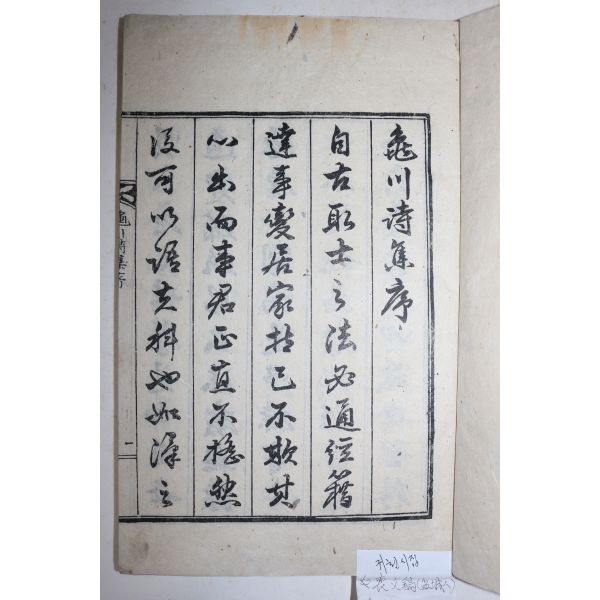 龜川詩集序
自古取士之法必通經籍
達事變居家持己不欺其
心出而事君正直不撓然
後可以語其科也如澤之
龜川詩集序
一
귀천시집